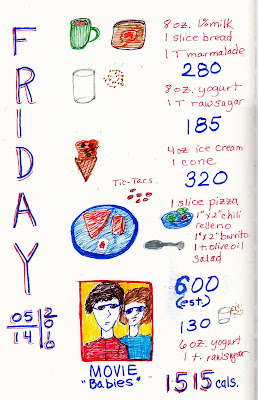 FRIDAY
05
14
2010
8 oz. 1% milk
1 slice bread
1 T marmalade
280
8 oz. yogurt
1 T raw sugar
185
4 oz ice cream
1 cone
320
Tic-Tacs.
1 slice pizza
1"x2" chili
relleno
1"x2" burrito
1 t. olive oil
salad
600
(est.)
130
6 oz. yogurt
1 t. raw sugar
MOVIE
"Babies"
1515 cals.